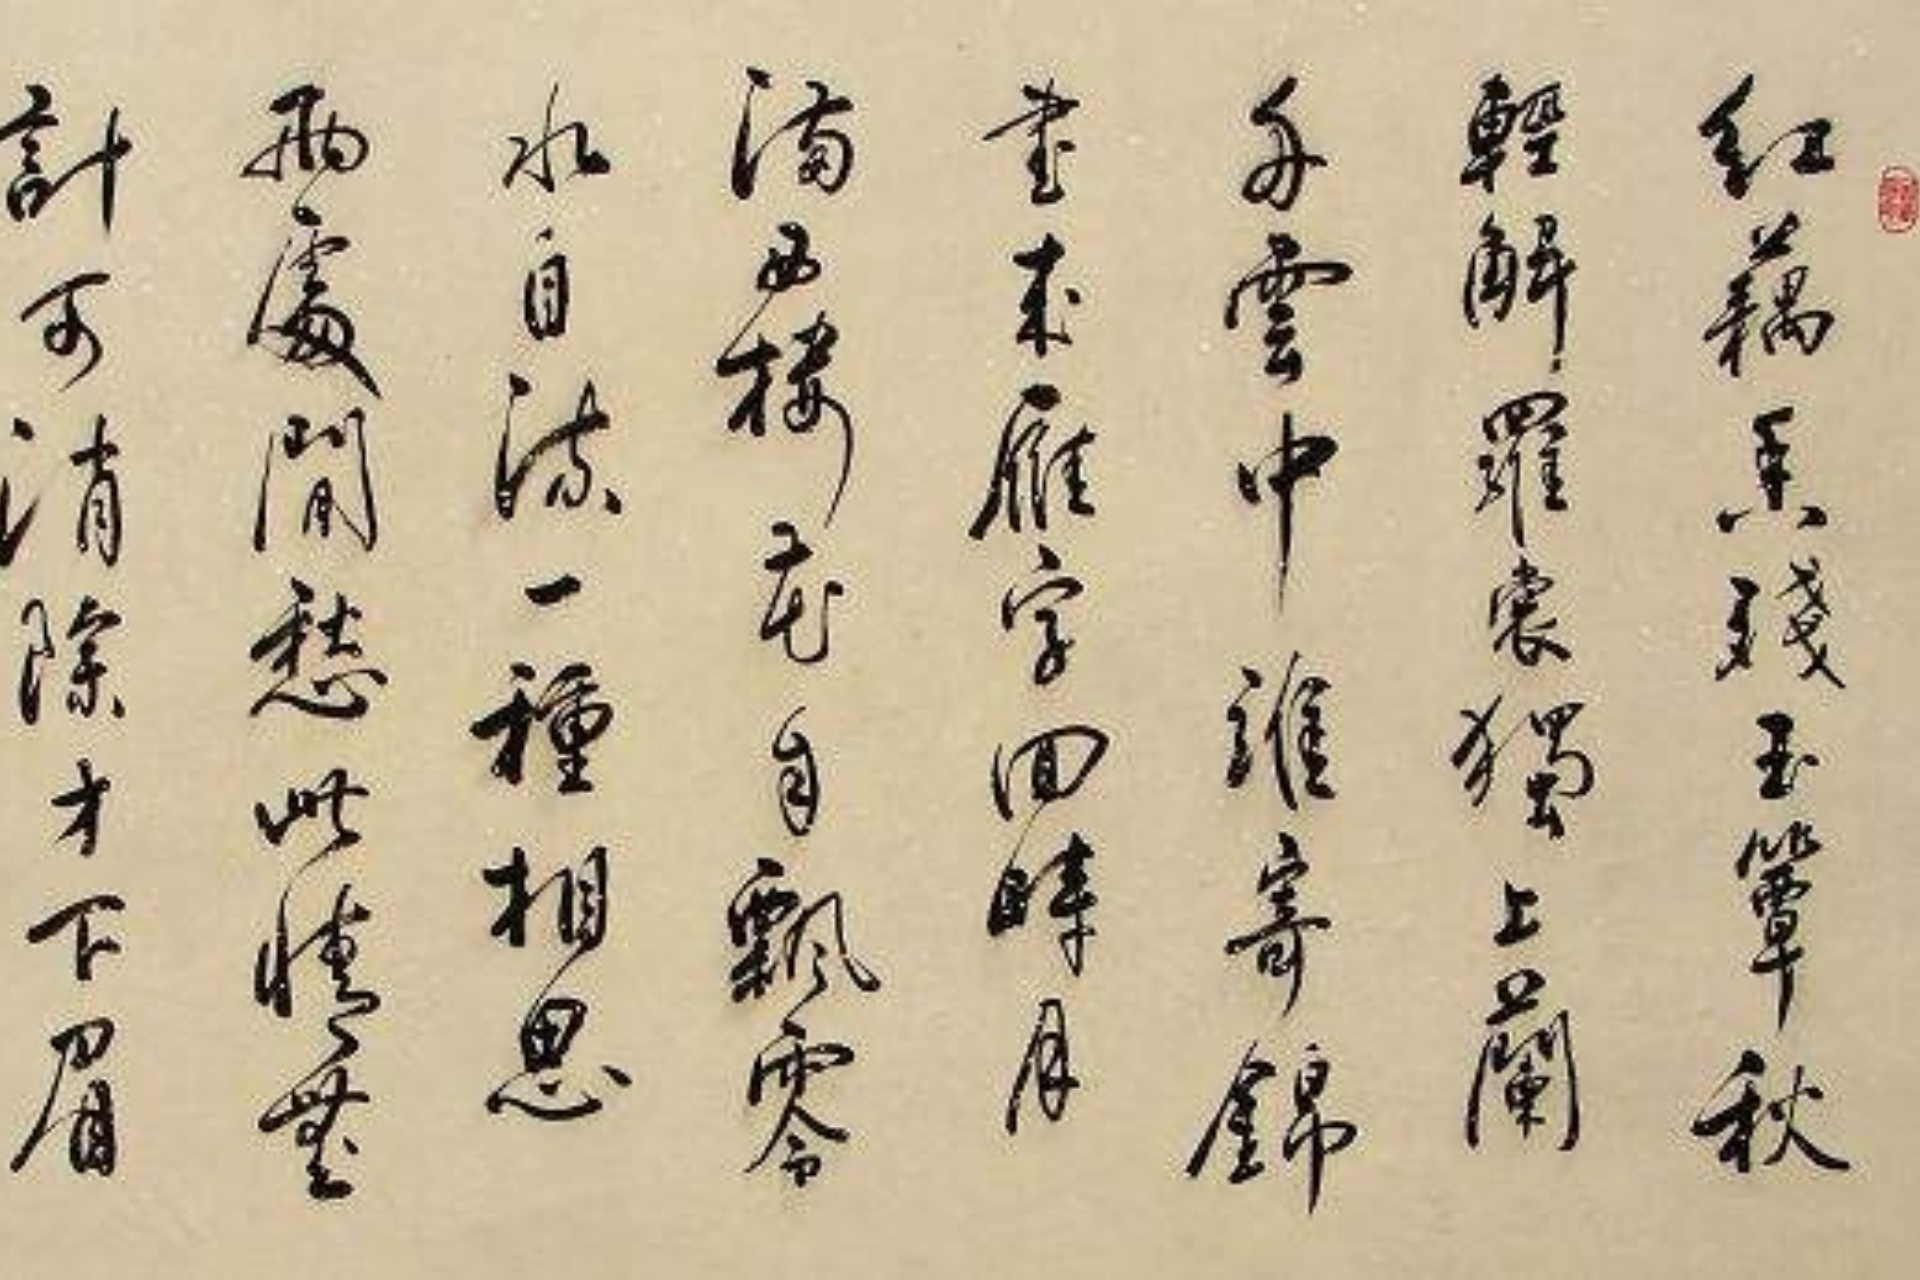 紅藕香殘玉簟秋
輕解羅裳獨上蘭
舟雲中誰寄錦
書來雁字回時月
滿西樓花自飄零
水自流一種相思
兩處閒愁此情無
計可消除才下眉